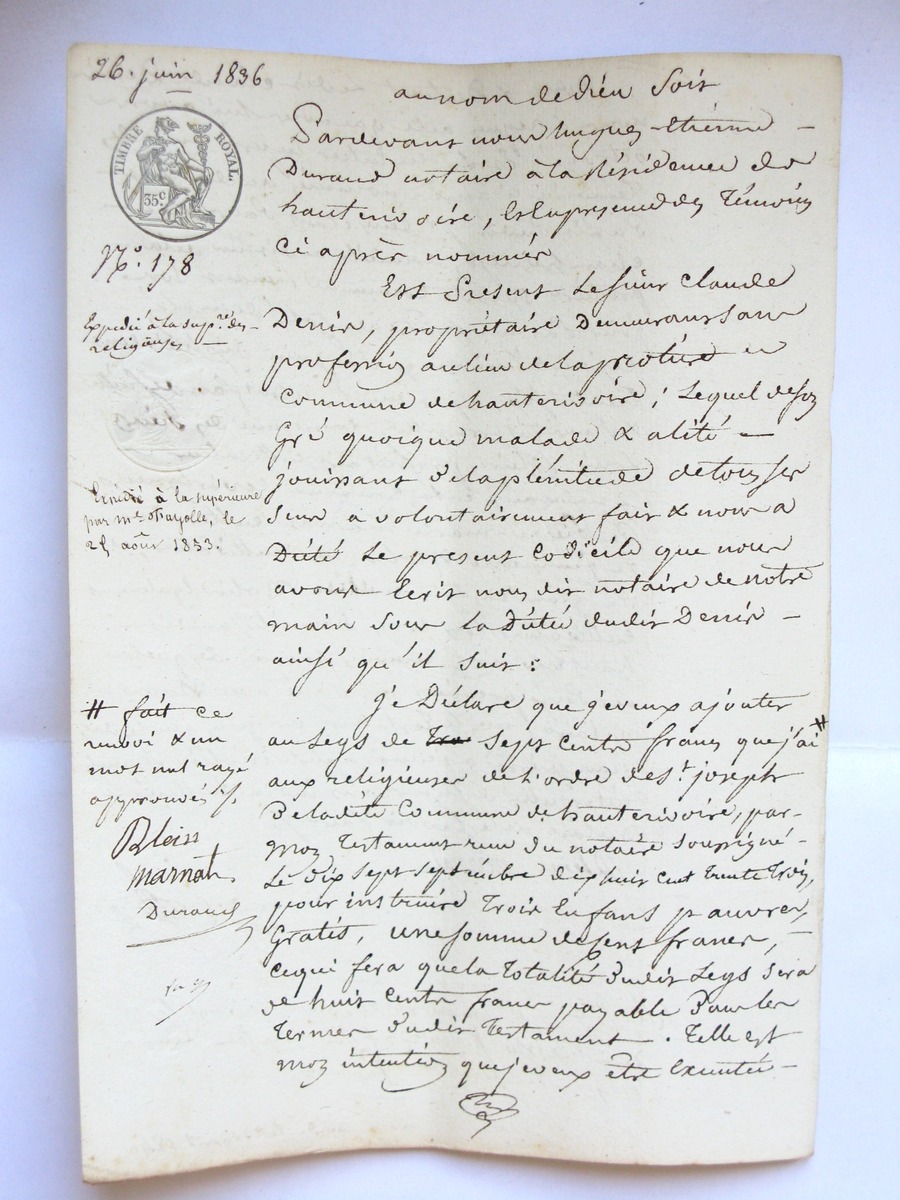 26. juin 1836
TIMBRE ROYAL.
35c.
N.o 178
Expedié à la supre. des
religieuses
Expédié à la supérieure
par me. Fayolle, le
25 août 1853.
au nom de dieu soit
Pardevant nous hugues étienne
Durand notaire à la Résidence de
hauterivoire, Et En presence des Témoins
Ci après nommés
Est Present Le sieur Claude
Denis, propriétaire Demeurant sans
profession au lieu de la
Commune de hauterivoire ; Lequel de son
Gré quoique malade & alité —
jouissant de la plénitude de tous ses
sens a volontairement fait & nous a
Dicté Le present Codicile que nous
avons Ecrit nous dit notaire de notre
main sous la Dictée dudit Denis —
ainsi qu'il suit :
Je Déclare que je veux ajouter
au Legs de sept cents francs que j'ai #
aux religieuses de l'ordre de St. joseph
De ladite Commune de hauterivoire, par
mon Testament reçu du notaire soussigné
Le dix sept septembre dix huit cent trente trois,
pour instruire Trois Enfans pauvres,
Gratis, une somme de Cent francs, —
ce qui fera que la Totalité dudit Legs sera
de huit cents francs payable Dans les
Termes dudit Testament . Telle est
mon intention que je veux être Executée —
# fait ce
renvoi & un
mot nul rayé
approuvés ·/.
Blein
marnat
Durand